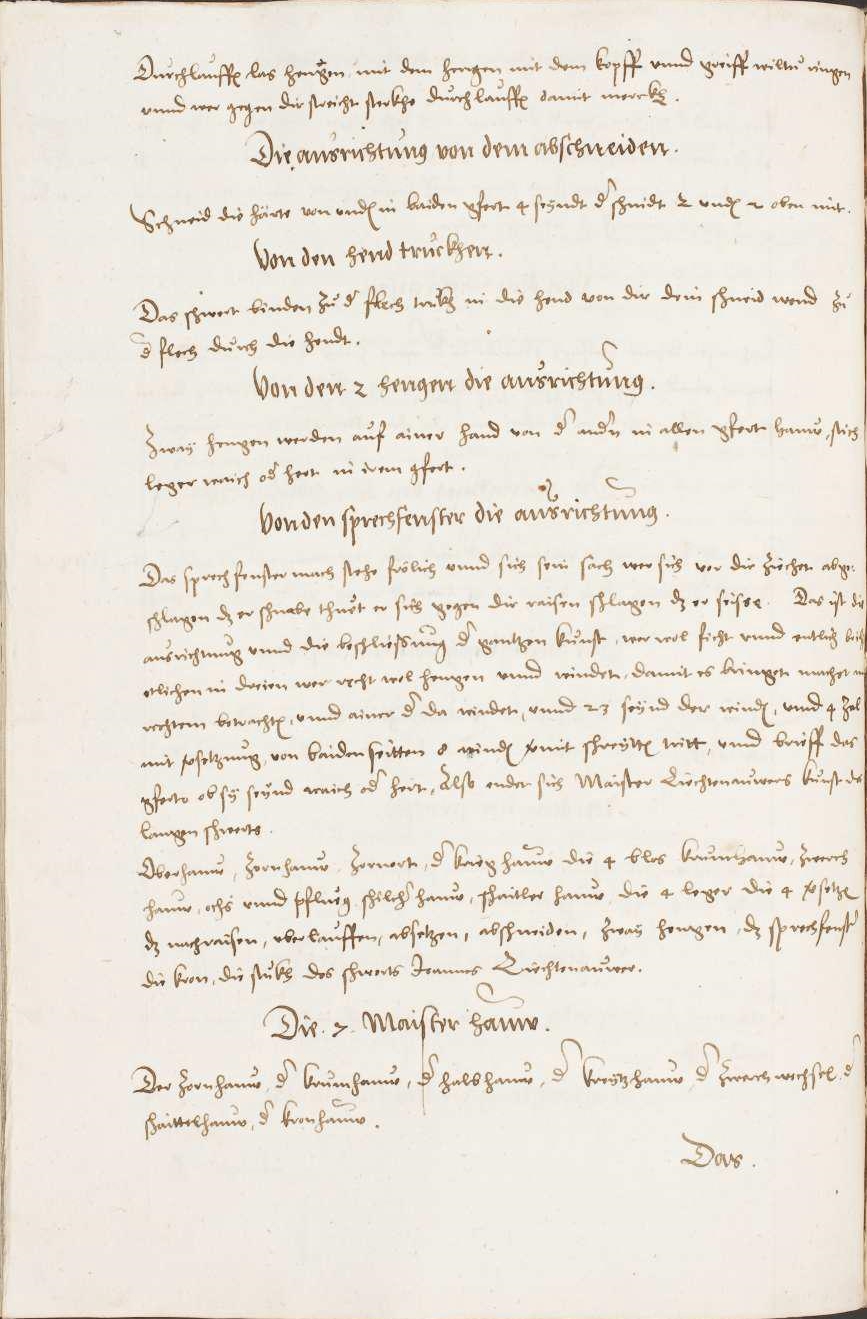 Durchlauff las hengen, mit dem hengen mit dem kopff vnnd greiff wiltu ringen
vnnd wer gegen dir streicht sterkhe durchlauff damit merckh.
Die ausrichtung von dem abschneiden.
Schneid die hörte von vnden in baiden gfert 4 seyndt d' schnidt 2 vnden 2 oben mit.
Von den hend truckhen.
Das schwert binden zu d' flech truckh in die hend von dir dein schneid wend zu
d' flech durch die hendt.
Von den 2 hengen die ausrichtung.
Zway hengen werden auf ainer hand von d' andern in allen gfert hauw, stich
leger waich od' hert in irem gfert.
Von den sprechfenster die ausrichtung.
Das sprechfenster mach stehe frölich vnnd sich sein sach wer sich vor dir ziechet abge:
schlagen dz er schnabe thuet er sich gegen dir raisen schlagen dz er feisee. Das ist die
ausrichtung vnnd die beschliessung d' gantzen kunst, wer wol ficht vnnd entlich
etlichen in dreien wer recht wol hengen vnnd windet, damit es bringet machet
rechtem betrachten, vnnd ainer d' da windet, vnnd 23 seynd der winden, vnnd 4 zel
mit vsetzung, von baiden seitten 8 winden mit schreytten tritt, vnnd brieff das
gferte ob sy seynd waich od' hert, Also endet sich Maister Liechtenauwers kunst des
langen schwerts.
Oberhauw, Zornhauw, Zornort, d' krieghauw die 4 blos krumhauw, zwerch
hauw, ochs vnnd pflueg, schilcher hauw, schaitler hauw, die 4 leger die 4 vsetzen
dz nachraisen, vberlauffen, absetzen, abschneiden, zway hengen, dz sprechfenster
die kron, die stukh des schwerts Joannes Liechtenauwer.
Die .7. Maister hauw.
Der Zornhauw, d' krumhauw, d' halshauw, d' kreytzhauw, d' zwerch wechsel, d'
schaittelhauw, d' kronhauw.
Das.